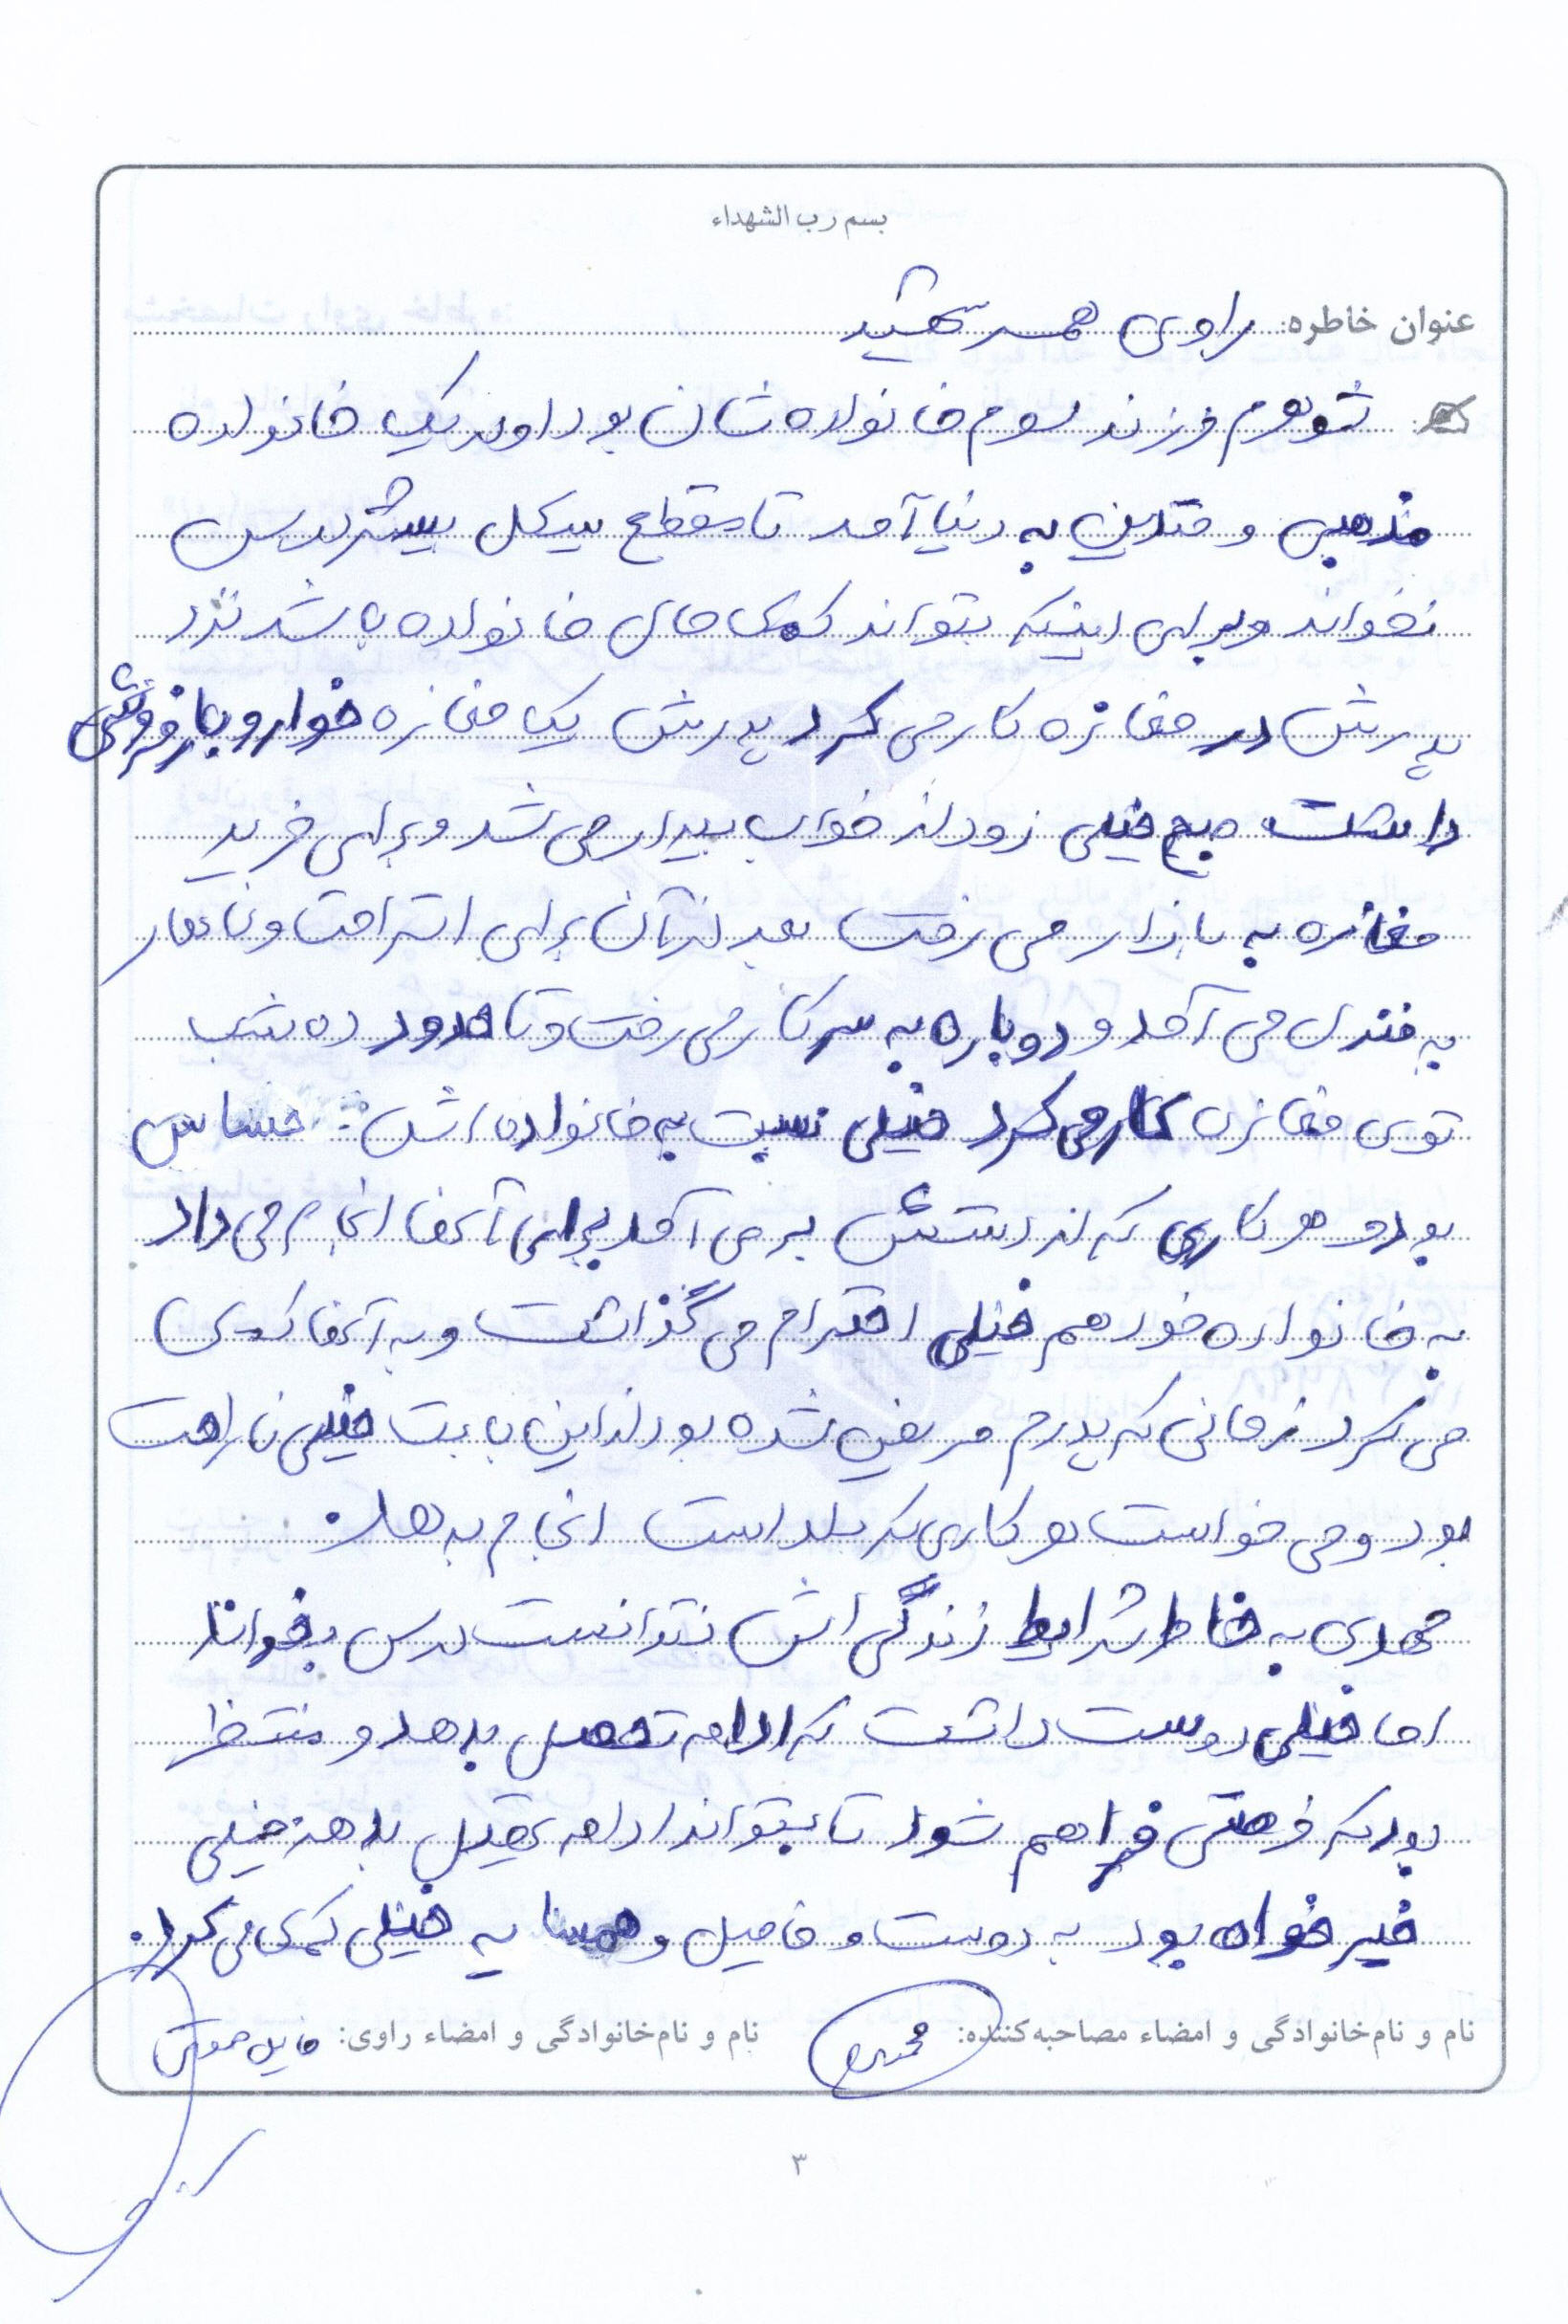 بسم رب الشهداء
عنوان خاطره: راوی همسر شهید
شوهرم فرزند سوم خانواده شان بود او در یک خانواده
مذهبی و متدین به دنیا آمد تا مقطع سیکل بیشتر درس
نخواند و برای اینکه بتواند کمک حال خانواده باشد نزد
پدرش در مغازه کار می کرد پدرش یک مغازه خوار و بار فروشی
داشت صبح خیلی زود از خواب بیدار می شد و برای خرید
مغازه به بازار می رفت بعد از آن برای استراحت و ناهار
به منزل می آمد و دوباره به سر کار می رفت و تا حدود ده شب
توی مغازه کار می کرد خیلی نسبت به خانواده اش حساس
بود و هر کاری که از دستش بر می آمد برای آنها انجام می داد
به خانواده خود هم خیلی احترام می گذاشت و به آنها کمک
می کرد زمانی که پدرم مریض شده بود از این بابت خیلی ناراحت
بود و می خواست هر کاری که بلد است انجام بدهد.
مهدی به خاطر شرایط زندگی اش نتوانست درس بخواند
اما خیلی دوست داشت که ادامه تحصیل بدهد و منتظر
بود که فرصتی فراهم شود تا بتواند ادامه تحصیل بدهد خیلی
خیر خواه بود به دوست و فامیل و همسایه خیلی کمک می کرد.
نام و نام‌خانوادگی و امضاء مصاحبه‌کننده: نام و نام‌خانوادگی و امضاء راوی:
۳